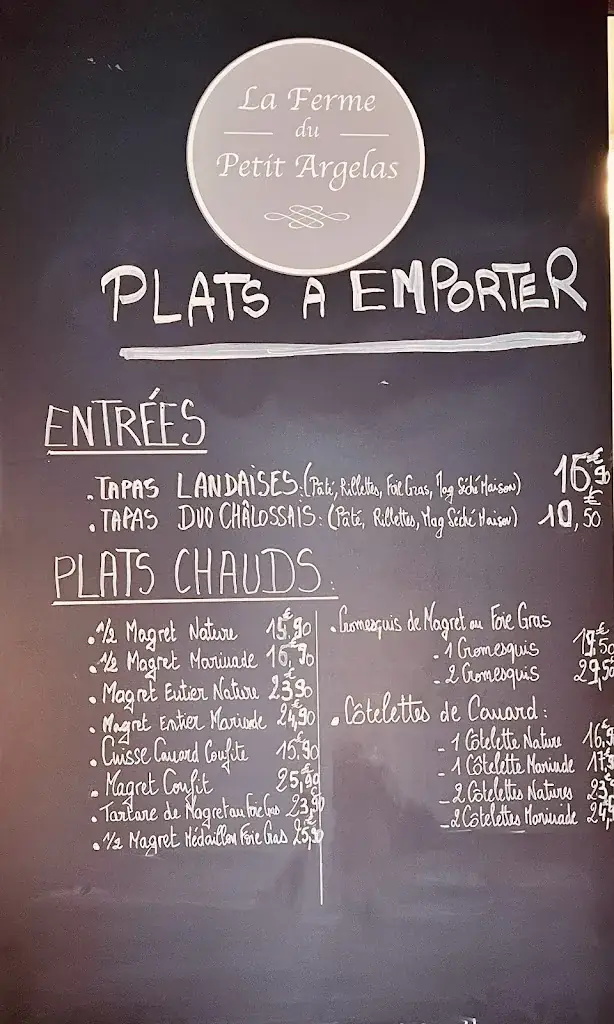 La Ferme
du
Petit Argelas
PLATS A EMPORTER
ENTRÉES
. TAPAS LANDAISES: (Pâté, Rillettes, Foie Gras, Mag Séché Maison) 16,€90
. TAPAS DUO CHÂLOSSAIS: (Pâté, Rillettes, Mag Séché Maison) 10,€50
PLATS CHAUDS:
. 1/2 Magret Nature 15,€90
. 1/2 Magret Marinade 16,€90
. Magret Entier Nature 23,€90
. Magret Entier Marinade 24,€90
. Cuisse Canard Confite 15,€90
. Magret Confit 25,€90
. Tartare de Magret au Foie Gras 23,€90
. 1/2 Magret Médaillon Foie Gras 25,€90
. Cromesquis de Magret au Foie Gras
- 1 Cromesquis 19,€50
- 2 Cromesquis 29,€50
. Côtelettes de Canard:
- 1 Côtelette Nature 16,€9
- 1 Côtelette Marinade 17,€
- 2 Côtelettes Natures 23,€
- 2 Côtelettes Marinade 24,€